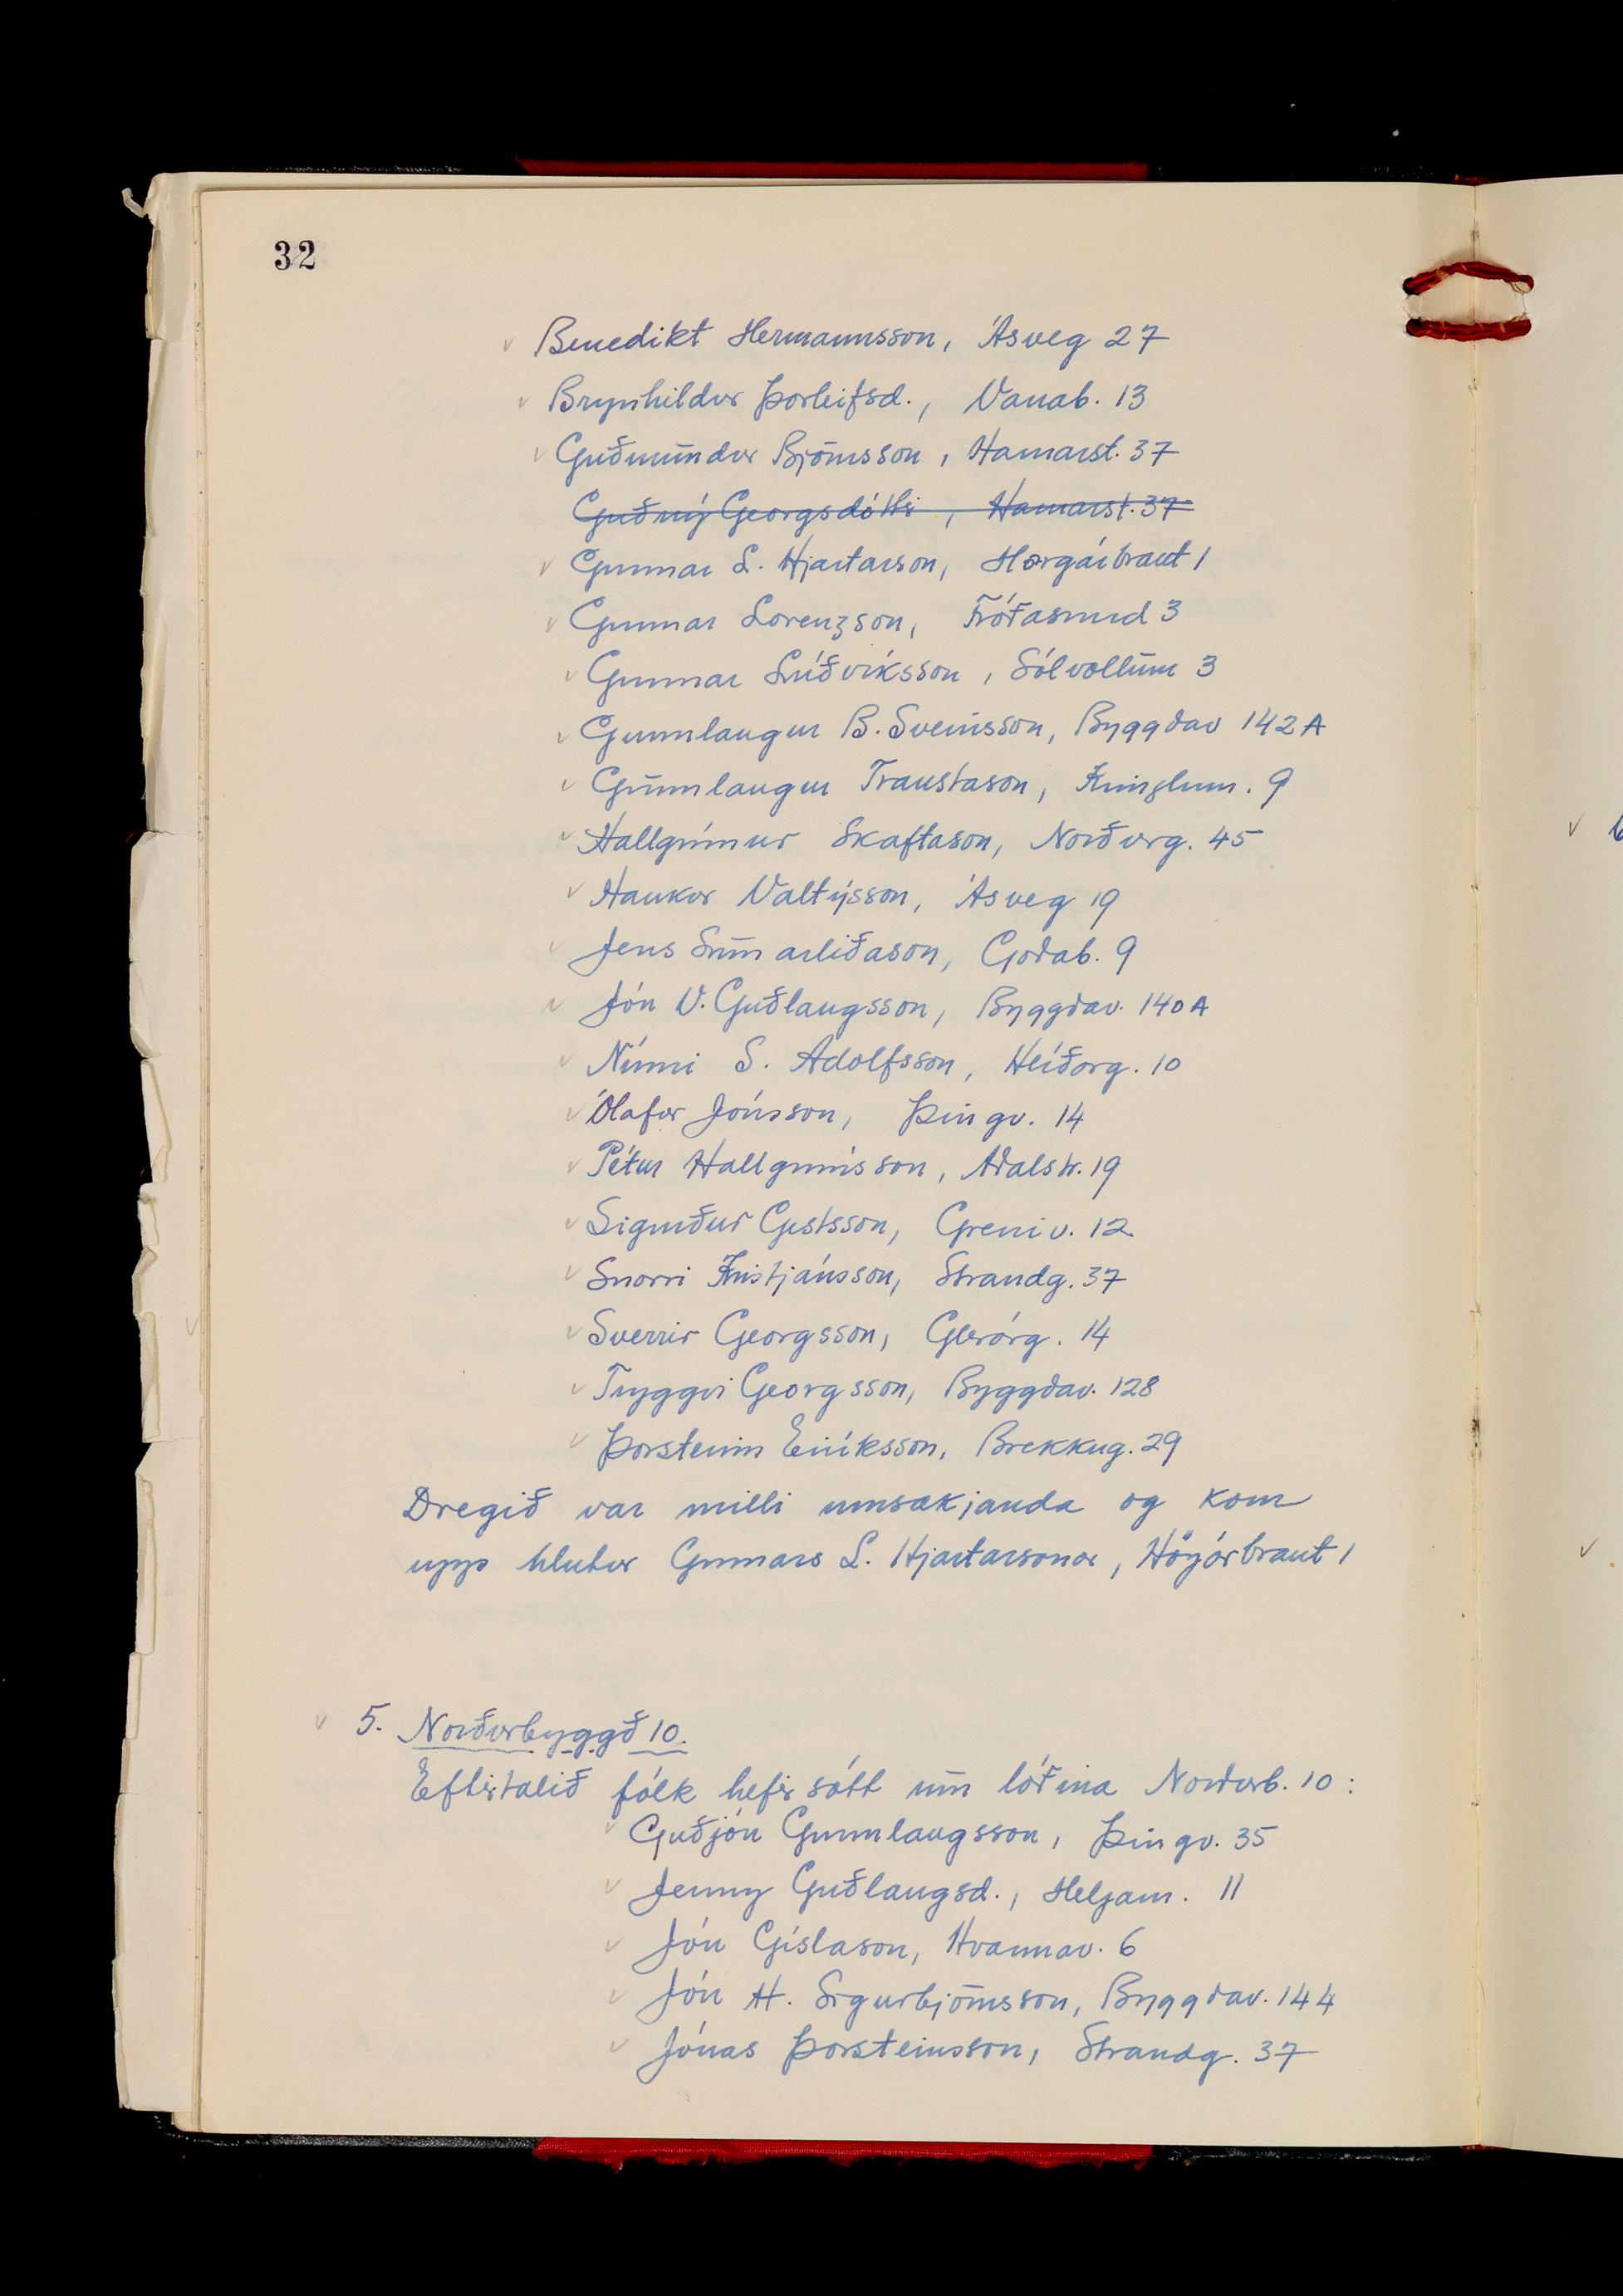 32
Benedikt Hermannsson, Ásveg 27
Brynhildur Þorleifsd., Vanab. 13
Guðmundur Björnsson, Hamarst. 37
Guðný Georgsdóttir, Hamarst. 37
Gunnar L. Hjartarson, Hörgárbraut 1
Gunnar Lorenzson, Fróðasund 3
Gunnar Lúðvíksson, Sólvöllum 3
Gunnlaugur B. Sveinsson, Byggðav 142A
Gunnlaugur Traustason, Kringlum. 9
Hallgrímur Skaftason, Norðurg. 45
Haukur Valtýsson, Ásveg 19
Jens Sumarliðason, Goðab. 9
Jón V. Guðlaugsson, Byggðav. 140A
Númi S. Adolfsson, Heiðarg. 10
Ólafur Jónsson, Þingv. 14
Pétur Hallgrímsson, Aðalstr. 19
Sigurður Gestsson, Greniv. 12
Snorri Kristjánsson, Strandg. 37
Sverrir Georgsson, Glerárg. 14
Tryggvi Georgsson, Byggðav. 128
Þorsteinn Eiríksson, Brekkug. 29
Dregið var milli umsækjanda og kom
upp hlutur Gunnars L. Hjartarsonar, Högárbraut 1
5. Norðurbyggð 10.
Eftirtalið fólk hefir sótt um lóðina Norðurb. 10:
Guðjón Gunnlaugsson, Þingv. 35
Jenny Guðlaugsd., Heljam. 11
Jón Gíslason, Hvannav. 6
Jón H. Sigurbjörnsson, Byggðav. 144
Jónas Þorsteinsson, Strandg. 37